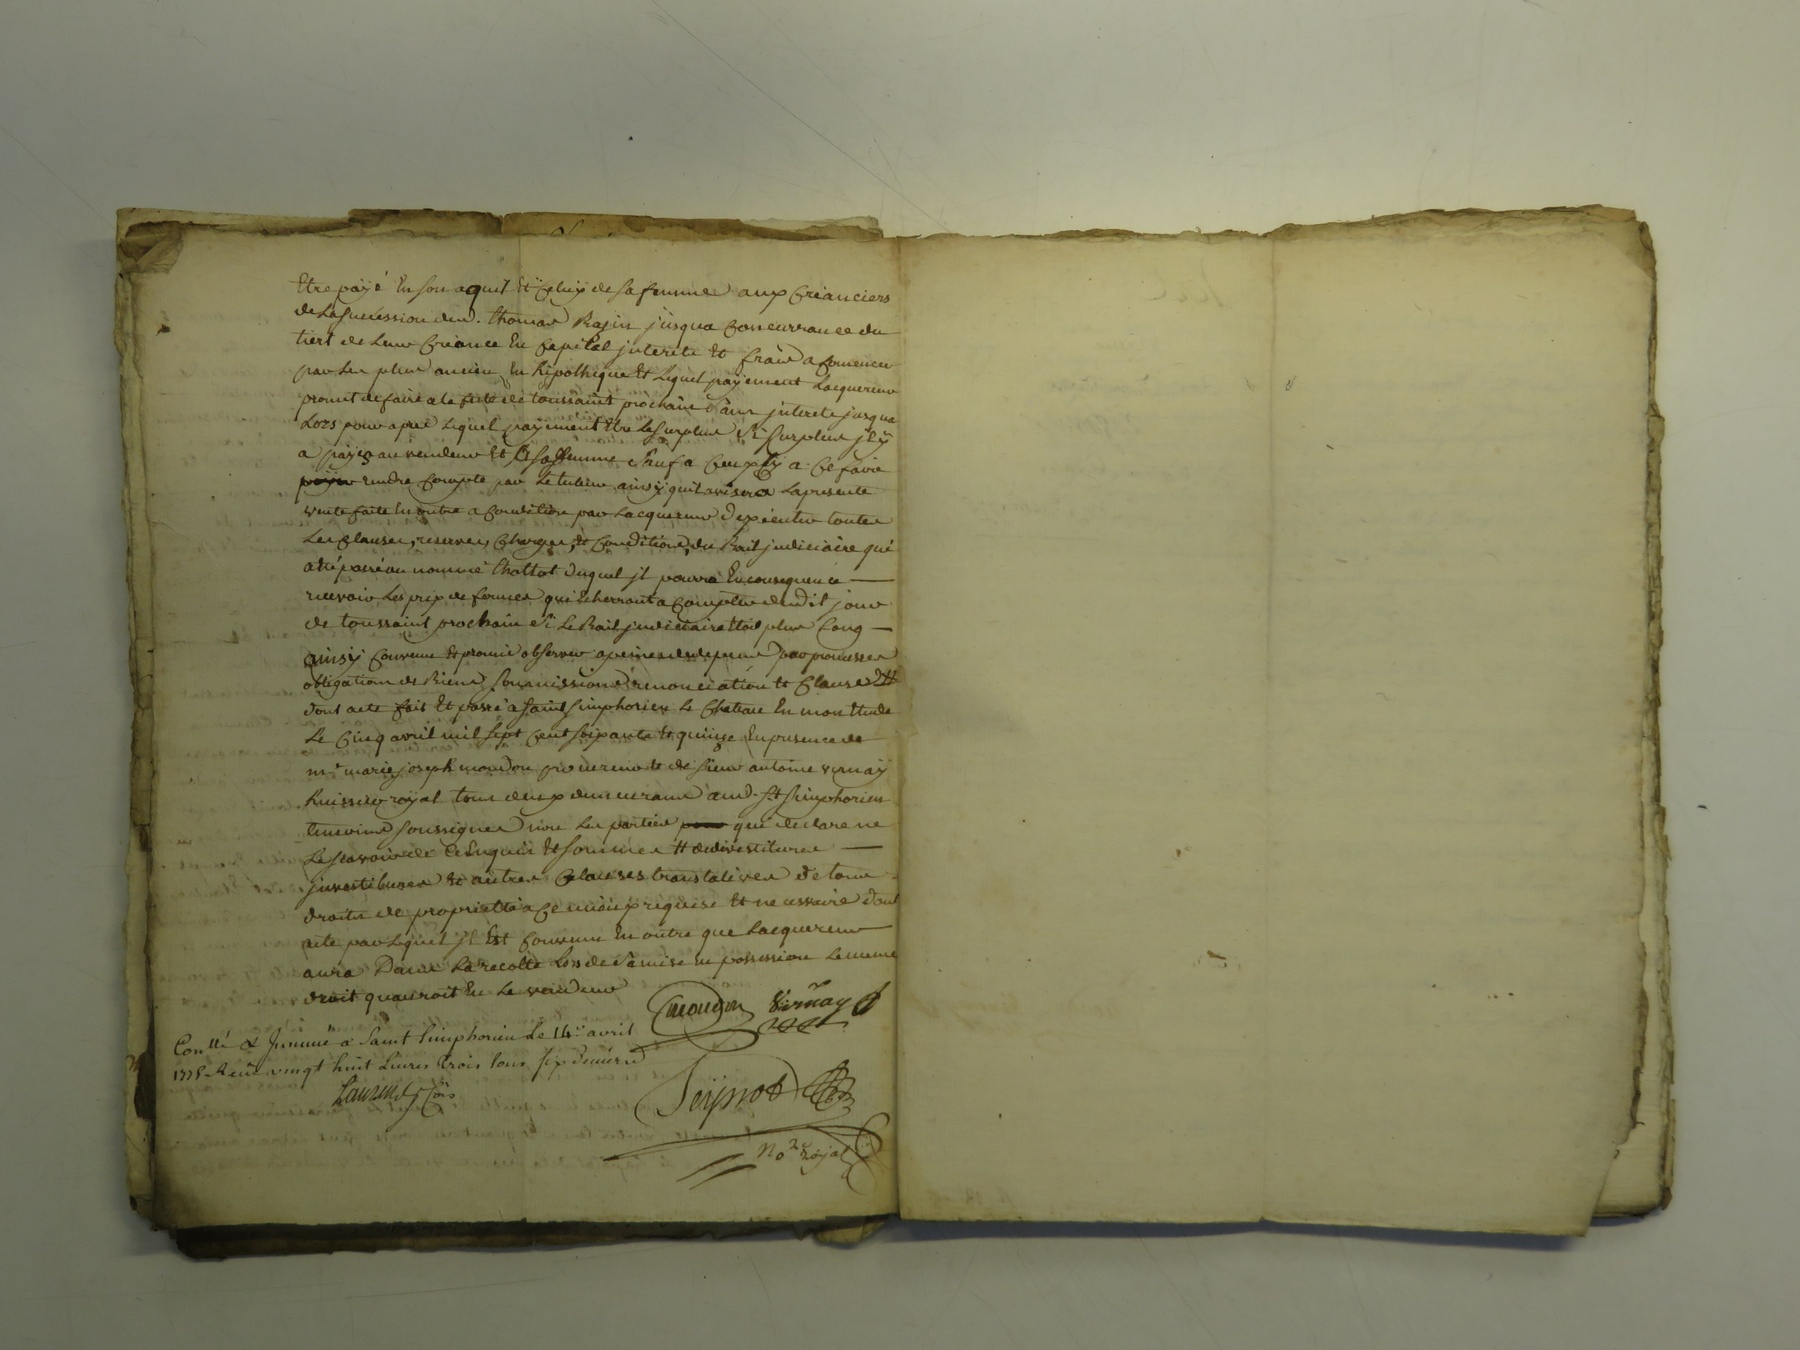 Etre payé En son aquit Et Celuy de sa femme aux Créanciers
de La succession dud. thomas Rasin jusqua Concurrance du
tiers de Leur Créance En Capital interets Et frais a Comencer
par Les plus ancien En hipotheque Et Lequel payement Lacquereur
promet de faire a la fete de toussaint prochain sans interets jusqua
Lors pour apres Lequel payement Etre Le surplus si surplus jl y
a payé au vendeur Et a sa femme sauf a Ceux cy a Se faire
rendre Compte par Le tuteur ainsy quil avisera La presente
vente faite En outre a Condition par Lacquereur d'exécuter toutes
Les Clauses, reserves, Charges, Et Conditions du Bail judiciaire qui
a été passé au nommé Chattot duquel jl pourra En consequence
recevoir Les prix de fermes qui Echerront a Compter dudit jour
de toussaint prochain si Le Bail judiciaire Etoit plus Long
ainsy Convenu Et promis observer a peine de depens par promesses
obligation de Biens soumissions renonciation Et Clauses #
dont acte fait Et passé a Saint Simphorien Le Chateau En mon Etude
Le Cinq avril mil sept Cent soixante Et quinze En presence de
me. marie joseph moudon procureur Et de sieur antoine vernay
huissier royal tous deux demeurant aud. St. Simphorien
temoins soussignes non Les parties qui declare ne
Le scavoir de Ce Enquis Et sommes # dedivestitures
jnvestitures Et autres Clauses translatives de tous
droits de proprietté a Ce mieux requise Et necessaire dont
acte par Lequel jl Est Convenu En outre que Lacquereur
aura Dans La recolte Lors de Sa mise en possession Le meme
droit quauroit Eu Le vendeur
moudon Vernay
Conllé & Jnsinué a Saint Simphorien Le 14e. avril
1775 Reçu vingt huit Livres trois sous six deniers
Seijnod
No.re Royal